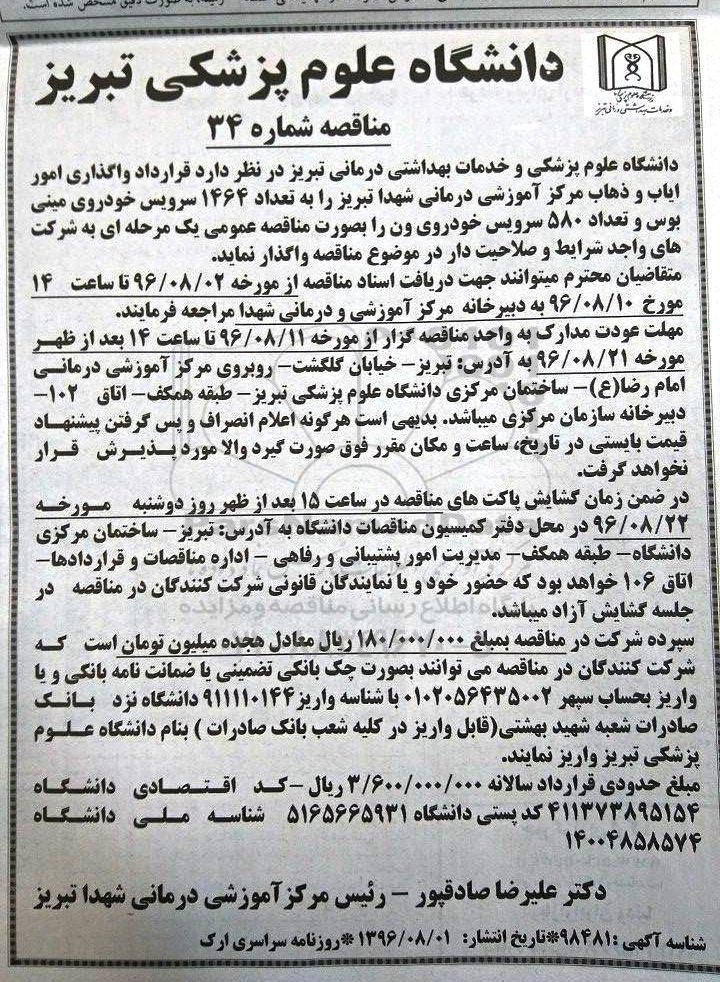 دانشگاه علوم پزشکی تبریز
مناقصه شماره ۳۴
دانشگاه علوم پزشکی و خدمات بهداشتی درمانی تبریز در نظر دارد قرارداد واگذاری امور
ایاب و ذهاب مرکز آموزشی درمانی شهدا تبریز را به تعداد ۱۴۶۴ سرویس خودروی مینی
بوس و تعداد ۵۸۰ سرویس خودروی ون را بصورت مناقصه عمومی یک مرحله ای به شرکت
های واجد شرایط و صلاحیت دار در موضوع مناقصه واگذار نماید.
متقاضیان محترم میتوانند جهت دریافت اسناد مناقصه از مورخه ۹۶/۰۸/۰۲ تا ساعت ۱۴
مورخ ۹۶/۰۸/۱۰ به دبیرخانه مرکز آموزشی و درمانی شهدا مراجعه فرمایند.
مهلت عودت مدارک به واحد مناقصه گزار از مورخه ۹۶/۰۸/۱۱ تا ساعت ۱۴ بعد از ظهر
مورخه ۹۶/۰۸/۲۱ به آدرس: تبریز- خیابان گلگشت- روبروی مرکز آموزشی درمانی
امام رضا(ع)- ساختمان مرکزی دانشگاه علوم پزشکی تبریز- طبقه همکف- اتاق ۱۰۲-
دبیرخانه سازمان مرکزی میباشد. بدیهی است هرگونه اعلام انصراف و پس گرفتن پیشنهاد
قیمت بایستی در تاریخ، ساعت و مکان مقرر فوق صورت گیرد والا مورد پذیرش قرار
نخواهد گرفت.
در ضمن زمان گشایش پاکت های مناقصه در ساعت ۱۵ بعد از ظهر روز دوشنبه مورخه
۹۶/۰۸/۲۲ در محل دفتر کمیسیون مناقصات دانشگاه به آدرس: تبریز- ساختمان مرکزی
دانشگاه- طبقه همکف- مدیریت امور پشتیبانی و رفاهی - اداره مناقصات و قراردادها-
اتاق ۱۰۶ خواهد بود که حضور خود و یا نمایندگان قانونی شرکت کنندگان در مناقصه در
جلسه گشایش آزاد میباشد.
سپرده شرکت در مناقصه بمبلغ ۱۸۰/۰۰۰/۰۰۰ ریال معادل هجده میلیون تومان است که
شرکت کنندگان در مناقصه می توانند بصورت چک بانکی تضمینی یا ضمانت نامه بانکی و یا
واریز بحساب سپهر ۰۱۰۲۰۵۶۴۳۵۰۰۲ با شناسه واریز۹۱۱۱۱۰۱۴۴ دانشگاه نزد بانک
صادرات شعبه شهید بهشتی(قابل واریز در کلیه شعب بانک صادرات ) بنام دانشگاه علوم
پزشکی تبریز واریز نمایند.
مبلغ حدودی قرارداد سالانه ۳/۶۰۰/۰۰۰/۰۰۰ ریال -کد اقتصادی دانشگاه
۴۱۱۳۷۳۸۹۵۱۵۴ کد پستی دانشگاه ۵۱۶۵۶۶۵۹۳۱ شناسه ملی دانشگاه
۱۴۰۰۴۸۵۸۵۷۴
دکتر علیرضا صادقپور - رئیس مرکزآموزشی درمانی شهدا تبریز
شناسه آگهی :۹۸۴۸۱*تاریخ انتشار: ۱۳۹۶/۰۸/۰۱ *روزنامه سراسری ارک